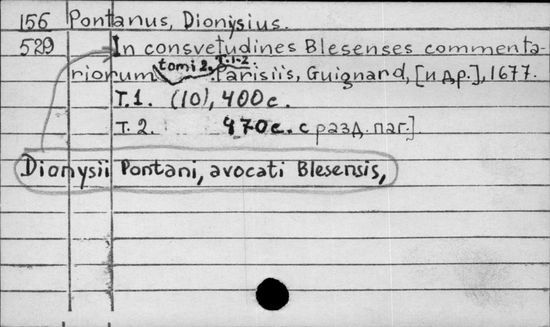 156 Pontanus, Dionysius.
529 In consvetudines Blesenses commenta-
riorum tomi 2. T.1-2. Parisiis, Guignard, [и др.], 1677.
T.1. (10), 400 с.
T.2. 470 с. с разд. паг.].
Dionysii Pontani, avocati Blesensis,